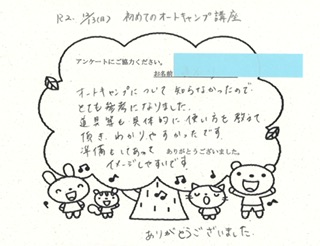 R2. 12/13(日) 初めてのオートキャンプ講座
アンケートにご協力ください。
お名前
オートキャンプについて知らなかったので
とても参考になりました。
道具等も具体的に使い方を教えて
頂き、わかりやすかったです。
準備もしてあって
ありがとうございました。
イメージしやすいです。
ありがとうございました。